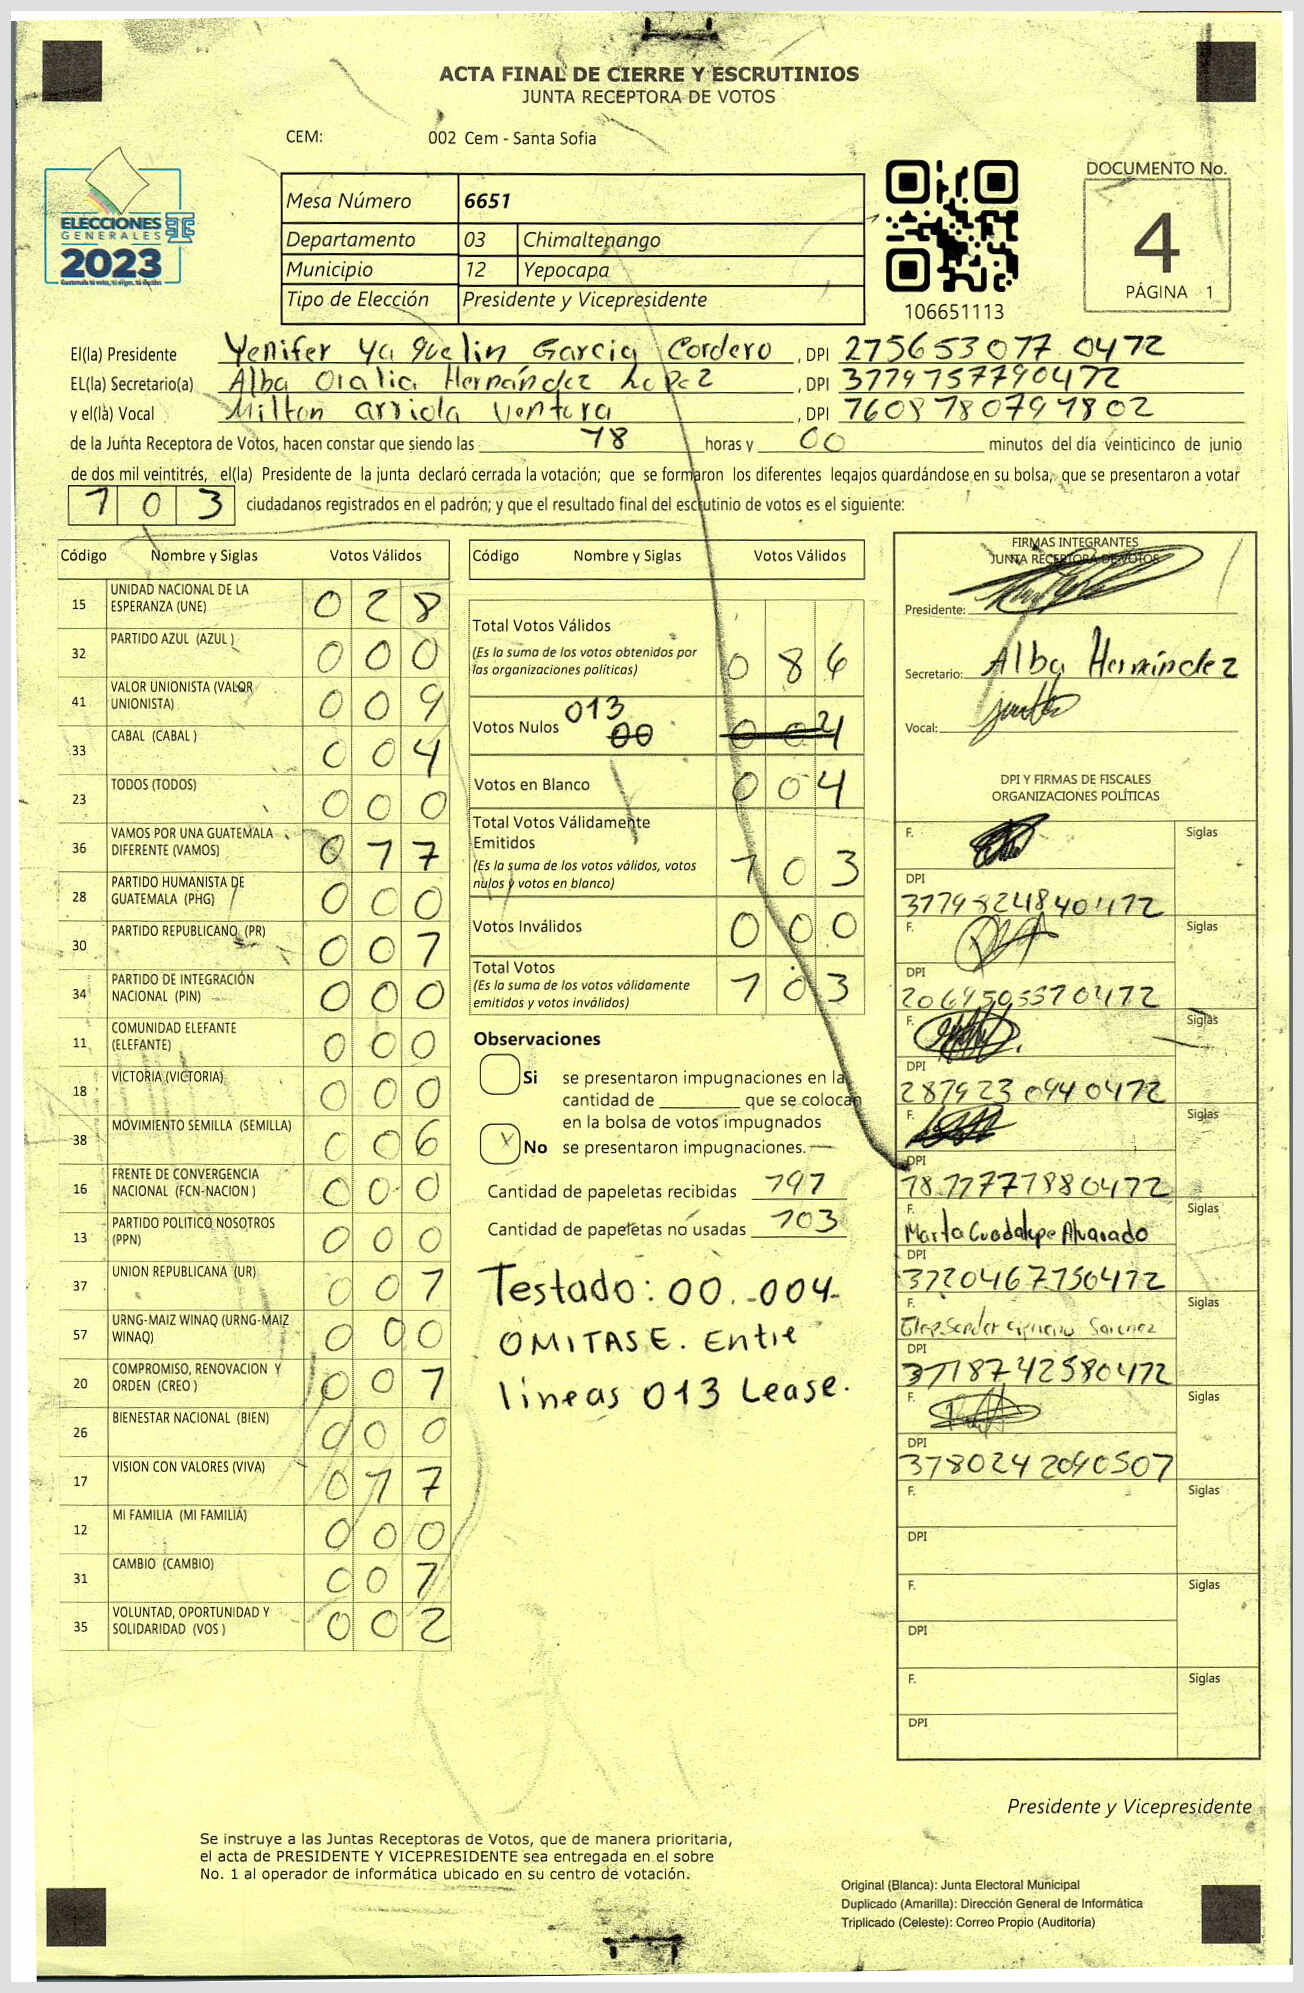 ACTA FINAL DE CIERRE Y ESCRUTINIOS
JUNTA RECEPTORA DE VOTOS
CEM: 002 Cem - Santa Sofia
ELECCIONES
GENERALES
2023
Mesa Número 6651
Departamento 03 Chimaltenango
Municipio 12 Yepocapa
Tipo de Elección Presidente y Vicepresidente
106651113
DOCUMENTO No.
4
PÁGINA 1
El(la) Presidente Yenifer Yaquelin Garcia Cordero, DPI 275653077 0472
EL(la) Secretario(a) Alba Oralia Hernández LoPez, DPI 3779757790472
y el(la) Vocal Milton arriola ventura, DPI 7608780797802
de la Junta Receptora de Votos, hacen constar que siendo las 18 horas y 00 minutos del día veinticinco de junio
de dos mil veintitrés, el(la) Presidente de la junta declaró cerrada la votación; que se formaron los diferentes legajos guardándose en su bolsa, que se presentaron a votar
103 ciudadanos registrados en el padrón; y que el resultado final del escrutinio de votos es el siguiente:
Código Nombre y Siglas Votos Válidos
15 UNIDAD NACIONAL DE LA ESPERANZA (UNE) 028
32 PARTIDO AZUL (AZUL ) 000
41 VALOR UNIONISTA (VALOR UNIONISTA) 009
33 CABAL (CABAL ) 004
23 TODOS (TODOS) 000
36 VAMOS POR UNA GUATEMALA DIFERENTE (VAMOS) 017
28 PARTIDO HUMANISTA DE GUATEMALA (PHG) 000
30 PARTIDO REPUBLICANO (PR) 001
34 PARTIDO DE INTEGRACIÓN NACIONAL (PIN) 000
11 COMUNIDAD ELEFANTE (ELEFANTE) 000
18 VICTORIA (VICTORIA) 000
38 MOVIMIENTO SEMILLA (SEMILLA) 006
16 FRENTE DE CONVERGENCIA NACIONAL (FCN-NACION ) 000
13 PARTIDO POLITICO NOSOTROS (PPN) 000
37 UNION REPUBLICANA (UR) 001
57 URNG-MAIZ WINAQ (URNG-MAIZ WINAQ) 000
20 COMPROMISO, RENOVACION Y ORDEN (CREO ) 001
26 BIENESTAR NACIONAL (BIEN) 000
17 VISION CON VALORES (VIVA) 017
12 MI FAMILIA (MI FAMILIA) 000
31 CAMBIO (CAMBIO) 001
35 VOLUNTAD, OPORTUNIDAD Y SOLIDARIDAD (VOS ) 002
Código Nombre y Siglas Votos Válidos
Total Votos Válidos 086
(Es la suma de los votos obtenidos por
las organizaciones políticas)
Votos Nulos 013 00 004
Votos en Blanco 004
Total Votos Válidamente
Emitidos 103
(Es la suma de los votos válidos, votos
nulos y votos en blanco)
Votos Inválidos 000
Total Votos 103
(Es la suma de los votos válidamente
emitidos y votos inválidos)
Observaciones
Si se presentaron impugnaciones en la
cantidad de ________ que se colocan
en la bolsa de votos impugnados
X No se presentaron impugnaciones.
Cantidad de papeletas recibidas 797
Cantidad de papeletas no usadas 703
Testado: 00.-004-
OMITASE. Entre
lineas 013 Lease.
FIRMAS INTEGRANTES
JUNTA RECEPTORA DE VOTOS
Presidente:
Secretario: Alba Hernández
Vocal:
DPI Y FIRMAS DE FISCALES
ORGANIZACIONES POLÍTICAS
F. Siglas
DPI
3779824840472
F. Siglas
DPI
2069505570472
F. Siglas
DPI
2879230940472
F. Siglas
DPI
F. Siglas
Marta Guadalupe Alvarado
DPI
3720467750472
F. Siglas
DPI
3718742580472
F. Siglas
DPI
3780242090507
F. Siglas
DPI
F. Siglas
DPI
F. Siglas
DPI
Presidente y Vicepresidente
Se instruye a las Juntas Receptoras de Votos, que de manera prioritaria,
el acta de PRESIDENTE Y VICEPRESIDENTE sea entregada en el sobre
No. 1 al operador de informática ubicado en su centro de votación.
Original (Blanca): Junta Electoral Municipal
Duplicado (Amarilla): Dirección General de Informática
Triplicado (Celeste): Correo Propio (Auditoría)